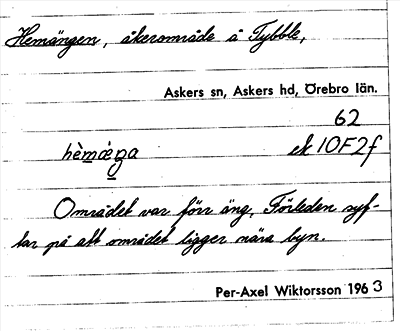 Hemängen, åkerområde å Tybble,
Askers sn, Askers hd, Örebro län.
62
hèmæ̀ŋa ek 10F2f
Området var förr äng. Förleden syf-
tar på att området ligger nära byn.
Per-Axel Wiktorsson 1963